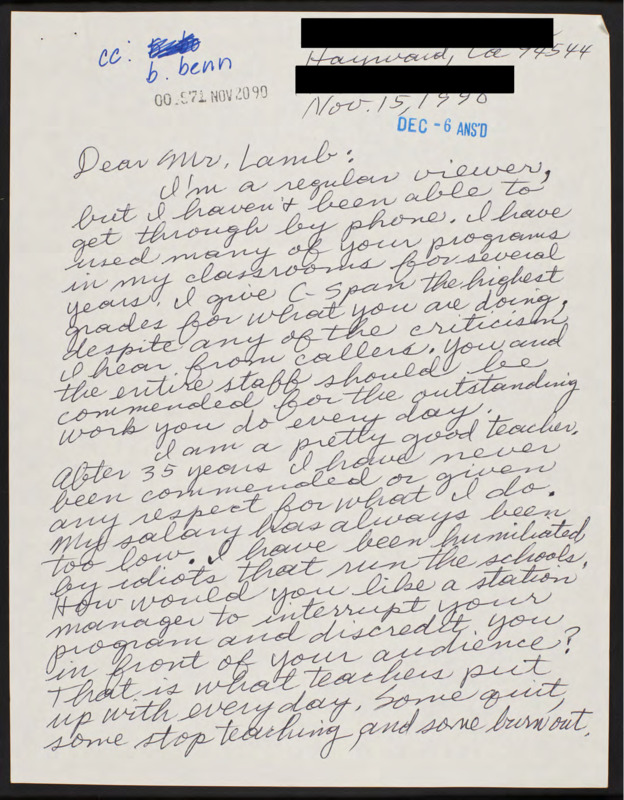 cc:
b. benn
00.S71 NOV 20 90
Hayward, Ca 94544
Nov. 15, 1990
DEC - 6 ANS'D
Dear Mr. Lamb:
I'm a regular viewer,
but I haven't been able to
get through by phone. I have
used many of your programs
in my classrooms for several
years. I give C-Span the highest
grades for what you are doing,
despite any of the criticism
I hear from callers. You and
the entire staff should be
commended for the outstanding
work you do every day.
I am a pretty good teacher.
After 35 years I have never
been commended or given
any respect for what I do.
My salary has always been
too low. I have been humiliated
by idiots that run the schools.
How would you like a station
manager to interrupt your
program and discredit you
in front of your audience?
That is what teachers put
up with everyday. Some quit,
some stop teaching, and some burn out.